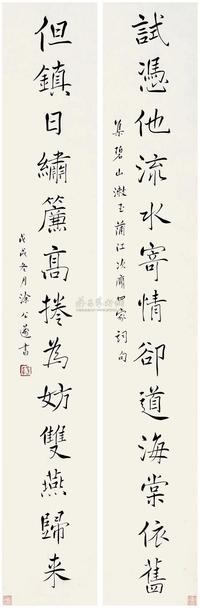 試憑他流水寄情卻道海棠依舊
集碧山漱玉蒲江次膺四家詞句
但鎮日繡簾高捲為妨雙燕歸来
戊戌冬月涂公遂書